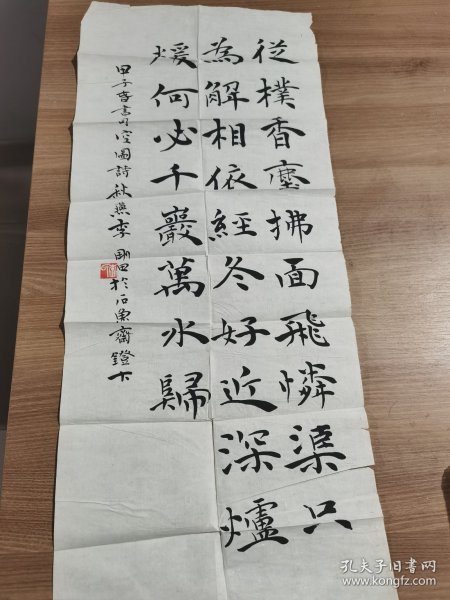 從樸香塵拂面飛憐渠只
為解相依經冬好近深爐
煖何必千巖萬水歸
甲子春書司空圖詩秋燕李剛田於石魚齋鐙下
孔夫子旧书网
www.kongfz.com